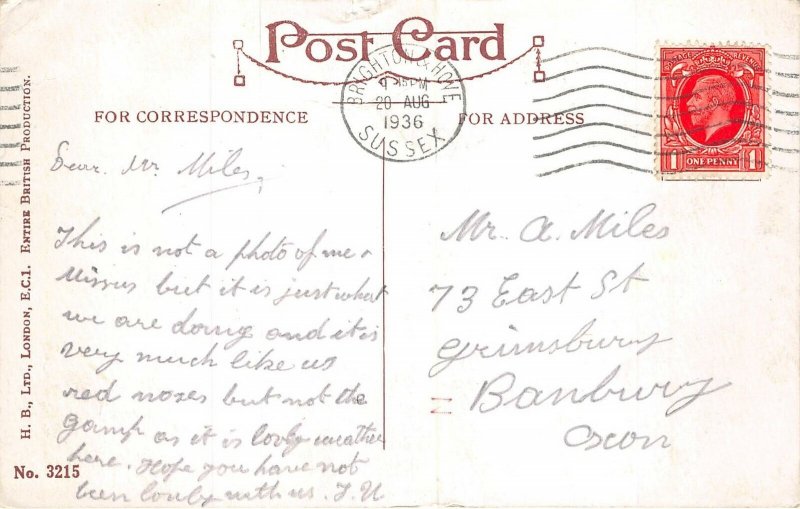 Post Card
BRIGHTON & HOVE
PM
20 AUG
1936
SUSSEX
POSTAGE REVENUE
1 ONE PENNY 1
FOR CORRESPONDENCE
FOR ADDRESS
H. B., LTD., LONDON, E.C.1. ENTIRE BRITISH PRODUCTION.
Dear Mr Miles,
This is not a photo of me +
Missus but it is just what
we are doing and it is
very much like us
red noses but not the
gamp as it is lovly weather
here. Hope you have not
been lonly with us.
No. 3215
Mr. A. Miles
73 East St
Grimsbury
Banbury
Oxon